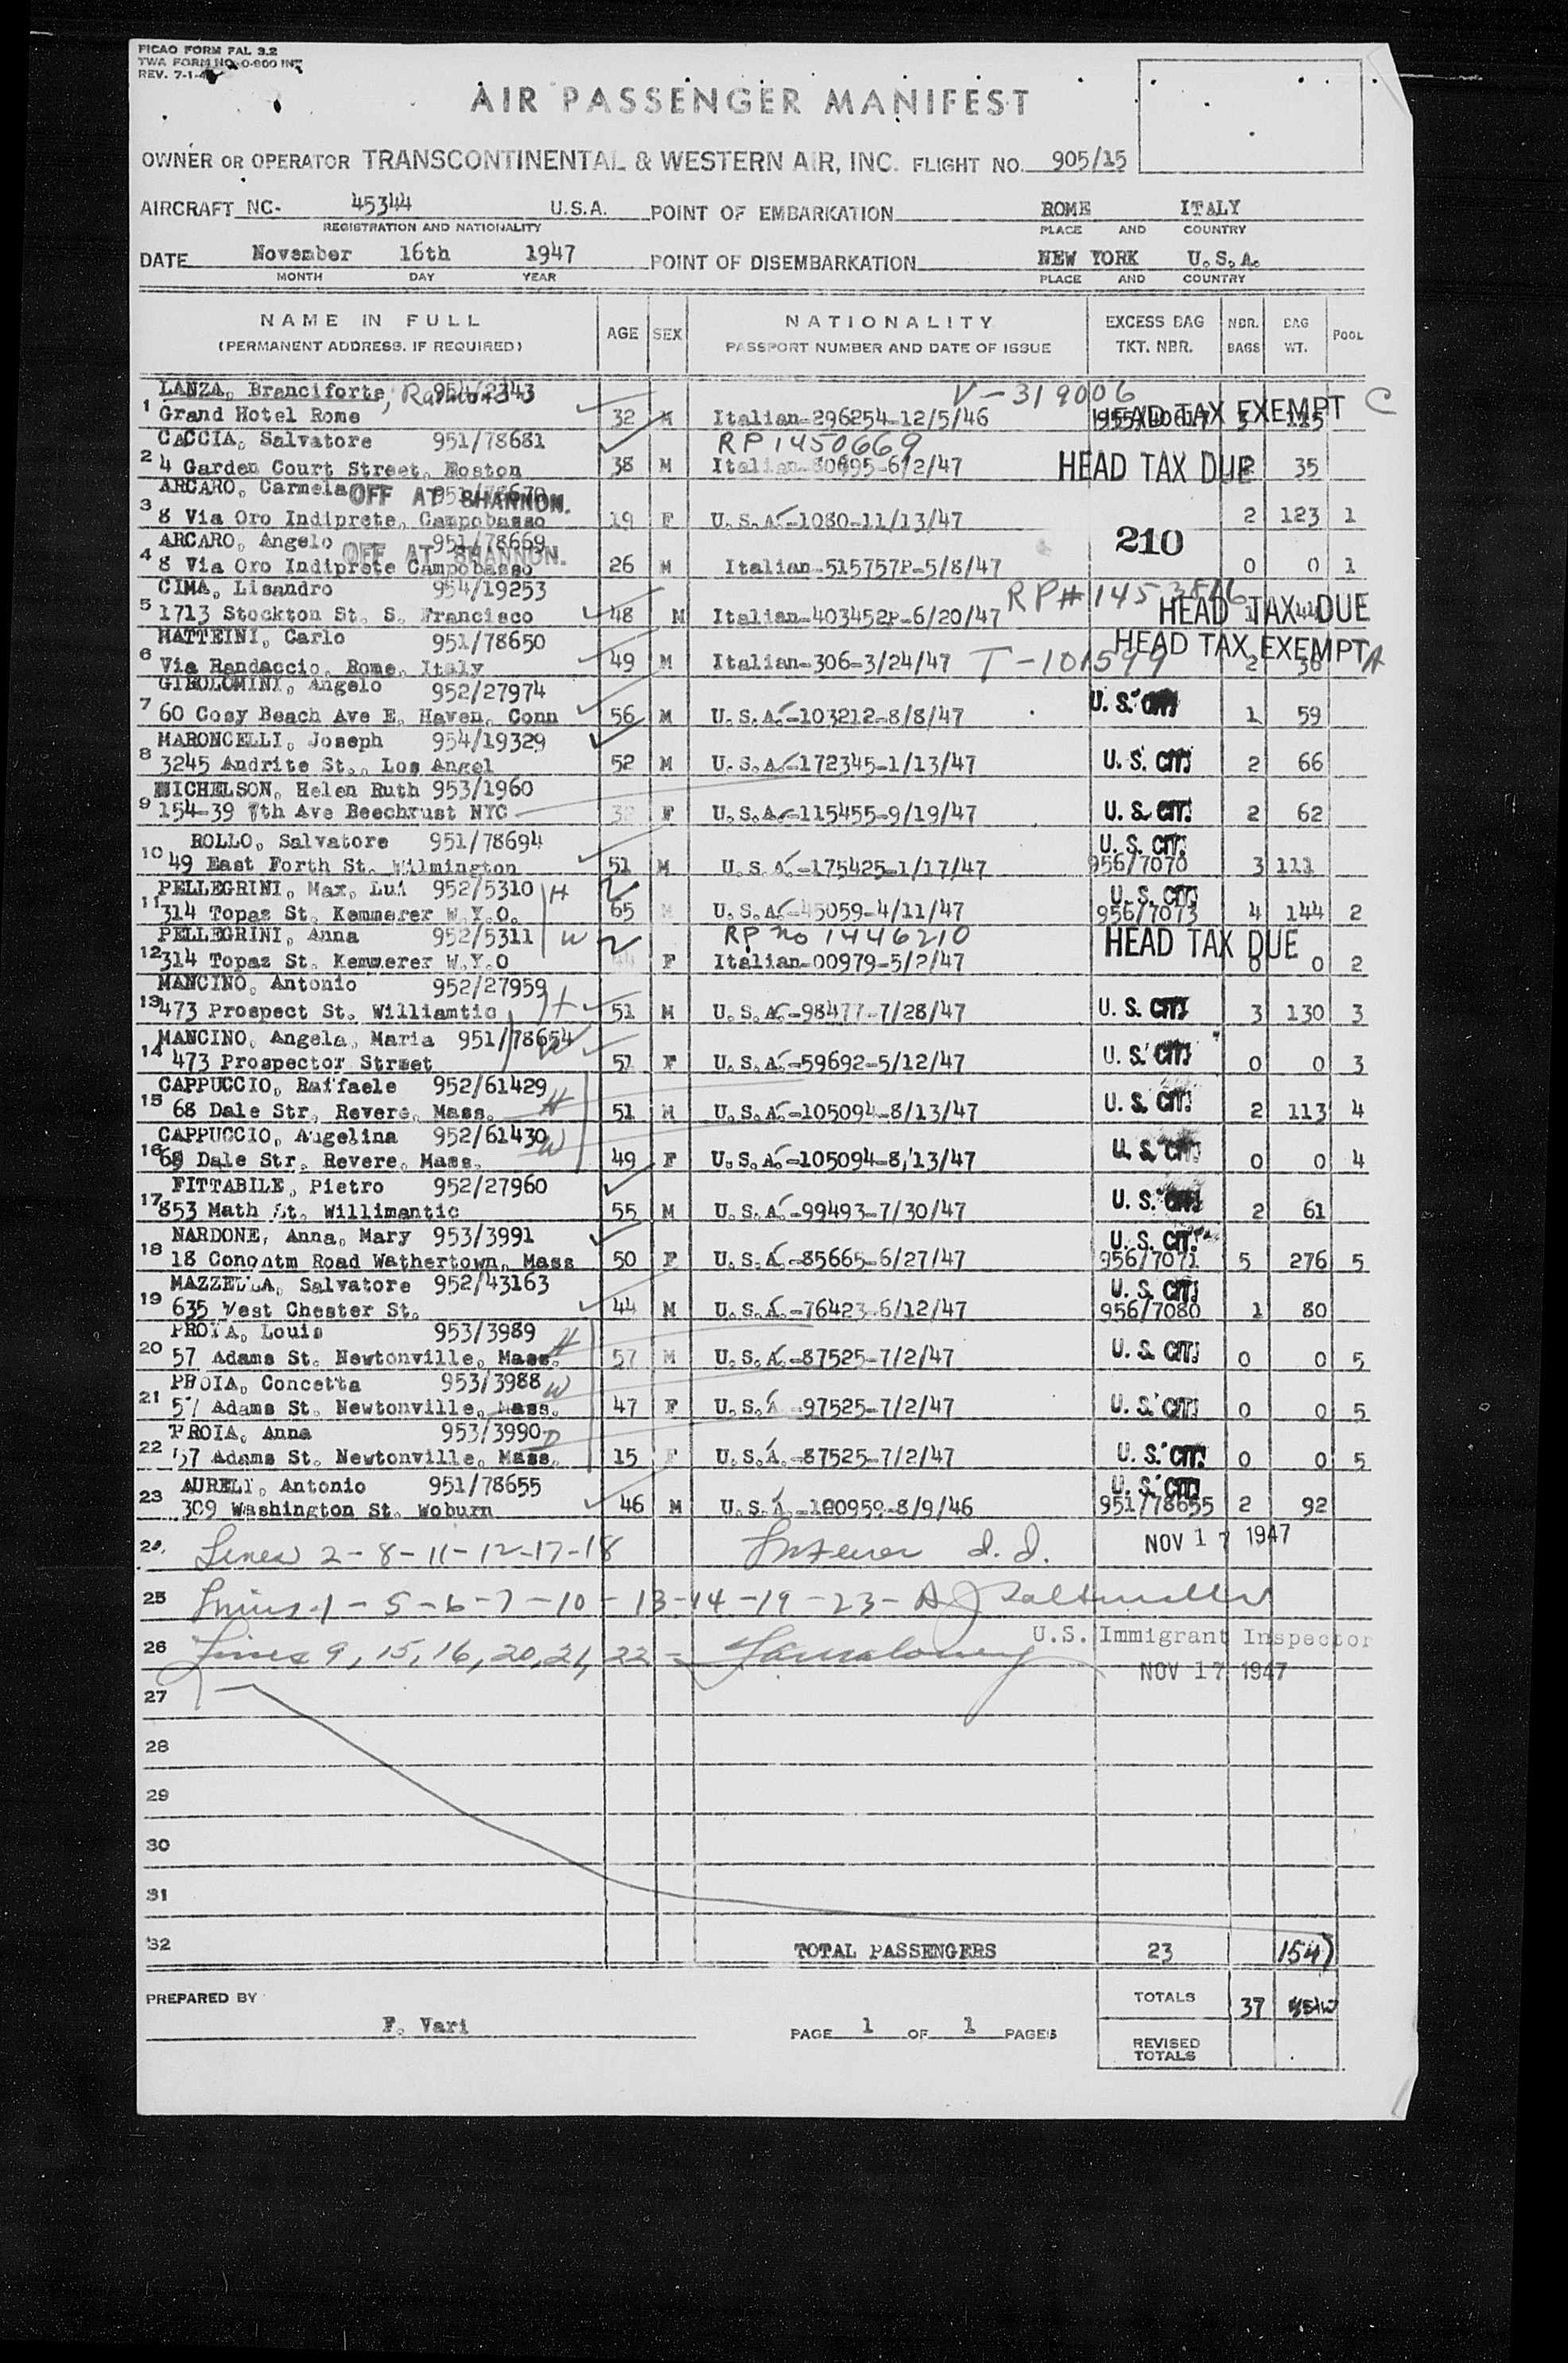 PICAO FORM FAL 3.2
TWA FORM NO. O-800 INT
REV. 7-1-4
AIR PASSENGER MANIFEST
OWNER OR OPERATOR TRANSCONTINENTAL & WESTERN AIR, INC. FLIGHT NO. 905/15
AIRCRAFT NC- 45344 U.S.A. POINT OF EMBARKATION ROME ITALY
REGISTRATION AND NATIONALITY PLACE AND COUNTRY
DATE November 16th 1947 POINT OF DISEMBARKATION NEW YORK U.S.A.
MONTH DAY YEAR PLACE AND COUNTRY
NAME IN FULL AGE SEX NATIONALITY EXCESS BAG NBR. BAG POOL
(PERMANENT ADDRESS, IF REQUIRED) PASSPORT NUMBER AND DATE OF ISSUE TKT. NBR. BAGS WT.
LANZA, Branciforte, 954/2343 V-319006
1 Grand Hotel Rome 32 M Italian-296254-12/5/46 HEAD TAX EXEMPT C
CACCIA, Salvatore 951/78681 RP 1450669
2 4 Garden Court Street, Boston 38 M Italian 6/2/47 HEAD TAX DUE 2 35
ARCARO, Carmela OFF AT SHANNON.
3 8 Via Oro Indiprete, Campobasso 19 F U.S.A.-1080-11/13/47 2 123 1
ARCARO, Angelo 951/78669 OFF AT SHANNON. 210
4 8 Via Oro Indiprete Campobasso 26 M Italian-515757P-5/8/47 0 0 1
CIMA, Lisandro 954/19253 RP#
5 1713 Stockton St. S. Francisco 48 M Italian-403452P-6/20/47 HEAD TAX DUE
MATTEINI, Carlo 951/78650 HEAD TAX EXEMPT A
6 Via Randaccio, Rome, Italy 49 M Italian-306-3/24/47 T-101599 2
GIROLOMINI, Angelo 952/27974
7 60 Cosy Beach Ave E. Haven, Conn 56 M U.S.A.-103212-8/8/47 U.S. CIT. 1 59
MARONCELLI, Joseph 954/19329
8 3245 Andrite St., Los Angel 52 M U.S.A.-172345-1/13/47 U.S. CIT. 2 66
MICHELSON, Helen Ruth 953/1960
9 154-39 7th Ave Beechrust NYC F U.S.A.-115455-9/19/47 U.S. CIT. 2 62
ROLLO, Salvatore 951/78694 U.S. CIT.
10 49 East Forth St. Wilmington 51 M U.S.A.-175425-1/17/47 956/7070 3 111
PELLEGRINI, Max, Lui 952/5310 H U.S. CIT.
11 314 Topaz St. Kemmerer W.Y.O. 65 M U.S.A.-45059-4/11/47 956/7073 4 144 2
PELLEGRINI, Anna 952/5311 W RP no 1446210 HEAD TAX DUE
12 314 Topaz St. Kemmerer W.Y.O F Italian-00979-5/2/47 0 0 2
MANCINO, Antonio 952/27959 H
13 473 Prospect St. Williamtic 51 M U.S.A.-98477-7/28/47 U.S. CIT. 3 130 3
MANCINO, Angela, Maria 951/78654 W
14 473 Prospector Street 51 F U.S.A.-59692-5/12/47 U.S. CIT. 0 0 3
CAPPUCCIO, Raffaele 952/61429 H
15 68 Dale Str, Revere, Mass. 51 M U.S.A.-105094-8/13/47 U.S. CIT. 2 113 4
CAPPUCCIO, Angelina 952/61430 W
16 68 Dale Str, Revere, Mass. 49 F U.S.A.-105094-8/13/47 U.S. CIT. 0 0 4
FITTABILE, Pietro 952/27960
17 853 Math St. Willimantic 55 M U.S.A.-99493-7/30/47 U.S. CIT. 2 61
NARDONE, Anna, Mary 953/3991 U.S. CIT.
18 18 Conontm Road Wathertown, Mass 50 F U.S.A.-85665-6/27/47 956/7071 5 276 5
MAZZELLA, Salvatore 952/43163 U.S. CIT.
19 635 West Chester St. 44 M U.S.A.-76423-6/12/47 956/7080 1 80
PROIA, Louis 953/3989 H
20 57 Adams St. Newtonville, Mass. 57 M U.S.A.-87525-7/2/47 U.S. CIT. 0 0 5
PROIA, Concetta 953/3988 W
21 57 Adams St. Newtonville, Mass. 47 F U.S.A 97525-7/2/47 U.S. CIT. 0 0 5
PROIA, Anna 953/3990 D
22 57 Adams St. Newtonville, Mass. 15 F U.S.A.-87525-7/2/47 U.S. CIT. 0 0 5
AURELI, Antonio 951/78655 U.S. CIT.
23 309 Washington St. Woburn 46 M U.S.A.-180959-8/9/46 951/78655 2 92
24 Lines 2-8-11-12-17-18 NOV 17 1947
25 Lines-1-5-6-7-10-13-14-19-23-
U.S. Immigrant Inspector
26 Lines 9, 15, 16, 20, 21, 22 -
NOV 17 1947
27
28
29
30
31
32 TOTAL PASSENGERS 23 1547
PREPARED BY TOTALS 37
F. Vari PAGE 1 OF 1 PAGES
REVISED TOTALS